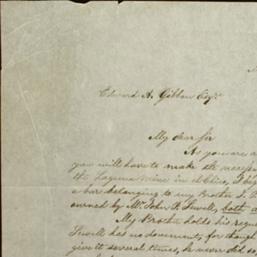 Edward A. Gibbon Esqr
My dear Sir
As you are a
you will have to make the necess
the Laguna mine in it
a bare belonging to my Brother
owned by Mr. John A. Sewell, both a
My Brother holds his regu
Sewell has no documents, for though
give it several times, he never did so